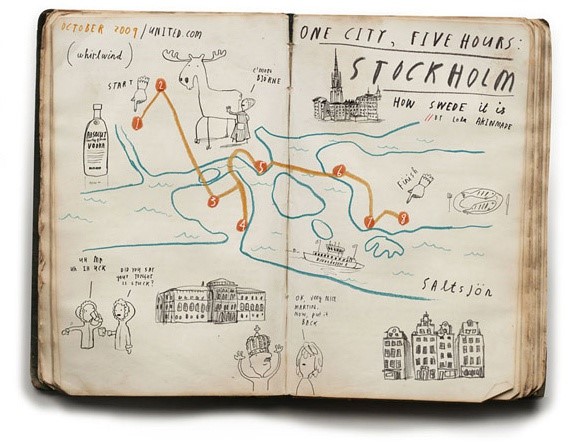 OCTOBER 2009 / UNITED.COM
(whirlwind)
START
C'MON
BJORNE
ABSOLUT
VODKA
1
2
3
4
5
6
7
8
ONE CITY, FIVE HOURS:
STOCKHOLM
HOW SWEDE it is
// BY Lola AKINMADE
Finish
SALtsjön
DID YOU SAY
YOUR TONGUE
IS STUCK?
OK. VERY NICE
MARTIN.
NOW, put it
BACK